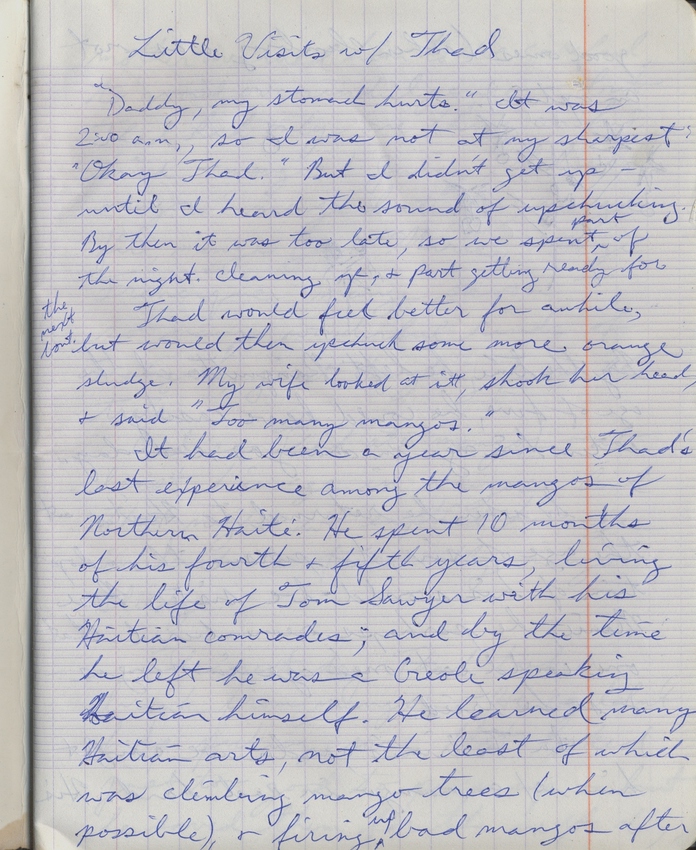 Little Visits w/ Thad
"Daddy, my stomach hurts." It was
2:00 a.m., so I was not at my sharpest:
"Okay Thad." But I didn't get up –
until I heard the sound of upchucking.
By then it was too late, so we spent part of
the night cleaning up, & part getting ready for
the next bout.
Thad would feel better for awhile,
but would then upchuck some more orange
sludge. My wife looked at it, shook her head,
& said "Too many mangos."
It had been a year since Thad's
last experience among the mangos of
Northern Haiti. He spent 10 months
of his fourth & fifth years, living
the life of Tom Sawyer with his
Haitian comrades; and by the time
he left he was a Creole speaking
Haitian himself. He learned many
Haitian arts, not the least of which
was climbing mango trees (when
possible), & firing up bad mangos after